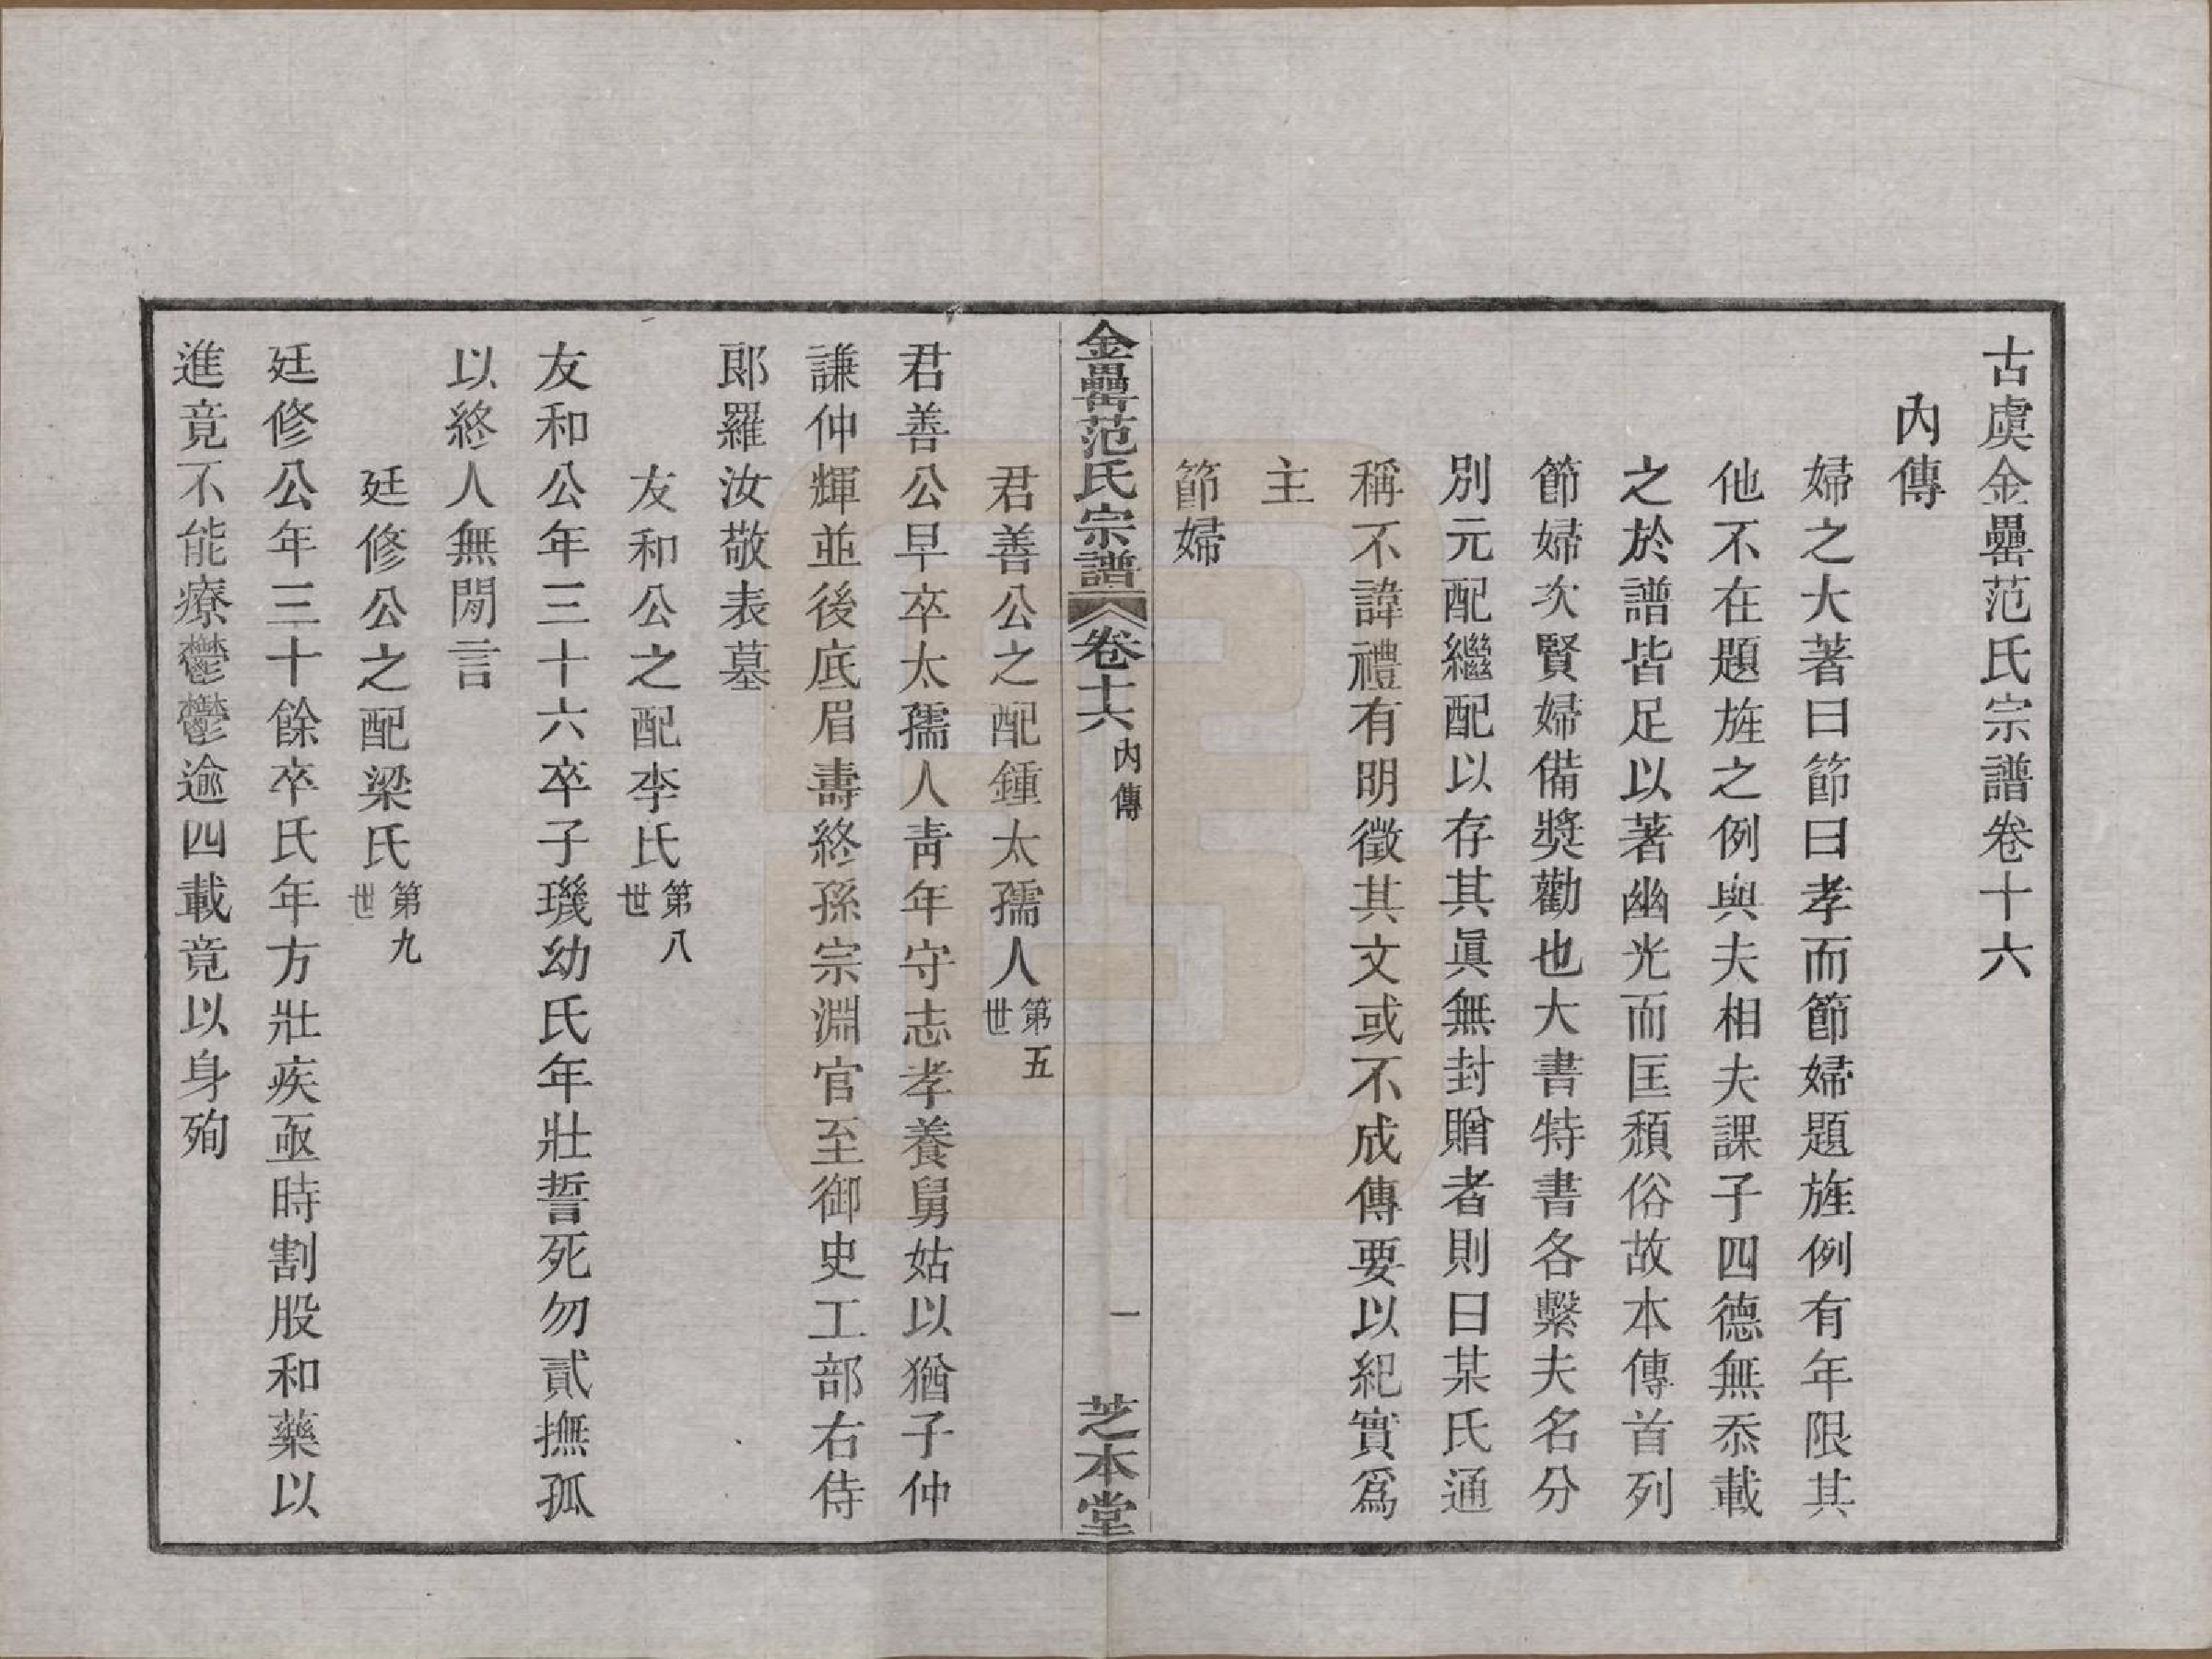 古虞金罍范氏宗譜卷十六
內傳
婦之大著曰節曰孝而節婦題旌例有年限其
他不在題旌之例與夫相夫課子四德無忝載
之於譜皆足以著幽光而匡頹俗故本傳首列
節婦次賢婦備獎勸也大書特書各繫夫名分
別元配繼配以存其眞無封贈者則曰某氏通
稱不諱禮有明徵其文或不成傳要以紀實爲
主
節婦
金罍范氏宗譜
卷十六
內傳
一
芝本堂
君善公之配鍾太孺人第五世
君善公早卒太孺人靑年守志孝養舅姑以猶子仲
謙仲輝並後底眉壽終孫宗淵官至御史工部右侍
郎羅汝敬表墓
友和公之配李氏第八世
友和公年三十六卒子璣幼氏年壯誓死勿貳撫孤
以終人無閒言
廷修公之配梁氏第九世
廷修公年三十餘卒氏年方壯疾亟時割股和藥以
進竟不能療鬱鬱逾四載竟以身殉